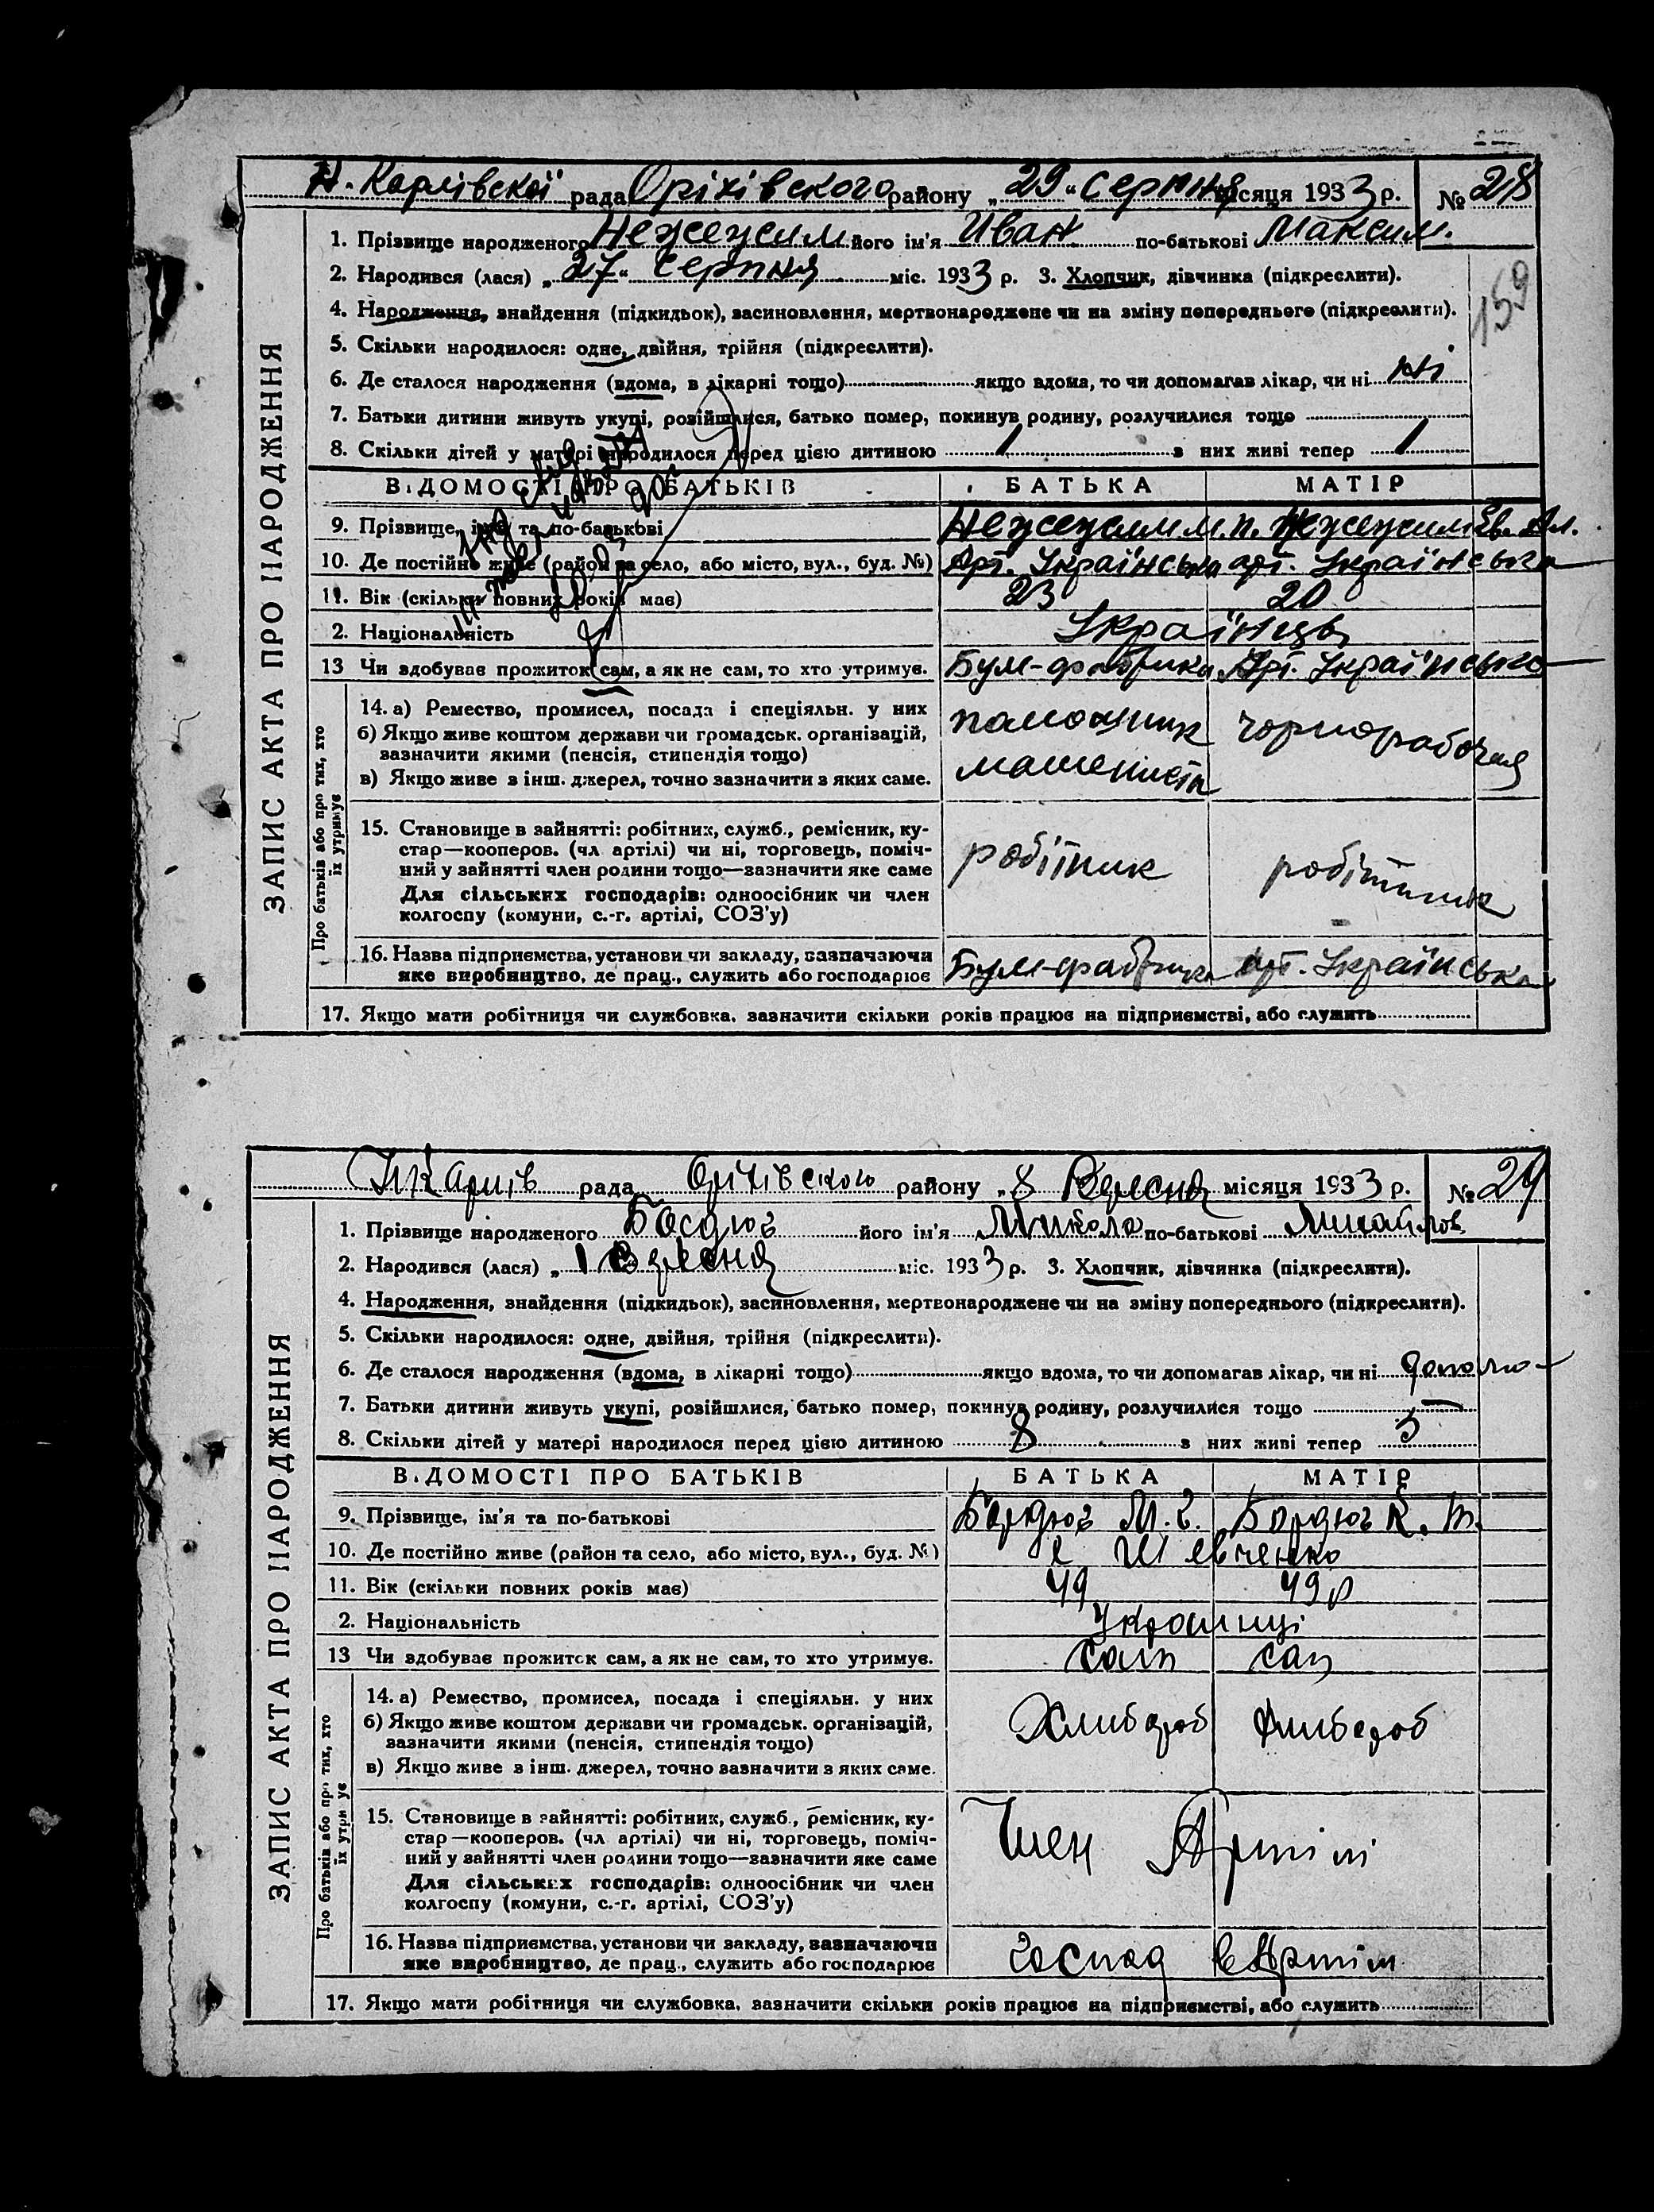 Н. Карлівской рада Оріхівского району „29“ серпня місяця 1933 р. № 28
1. Прізвище народженого Нежежим його ім'я Иван по-батькові Максим.
2. Народився (лася) „27“ серпня міс. 1933 р. 3. Хлопчик, дівчинка (підкреслити).
159
4. Народження, знайдення (підкидьок), васиновлення, мертвонароджене чи на зміну попереднього (підкреслити).
5. Скільки народилося: одне, двійня, трійня (підкреслити).
6. Де сталося народження (вдома, в лікарні тощо) якщо вдома, то чи допомагав лікар, чи ні ні
7. Батьки дитини живуть укупі, розійшлися, батько помер, покинув родину, розлучилися тощо
8. Скільки дітей у матері народилося перед цією дитиною 1 з них живі тепер 1
ВІДОМОСТІ ПРО БАТЬКІВ БАТЬКА МАТІР
9. Прізвище, ім'я та по-батькові Нежежим М. П. Нежежим Єв. Ал.
10. Де постійно живе (район та село, або місто, вул., буд. №) Арт. Українська арт. Українська
11. Вік (скільки повних років має) 23 20
2. Національність Українць
13 Чи здобував прожиток сам, а як не сам, то хто утримує. Бум-фабрика Арт. Українська
14. а) Ремество, промисел, посада і спеціяльн. у них помошник чорнорабочая
б) Якщо живе коштом держави чи громадськ. організацій, машениста
зазначити якими (пенсія, стипендія тощо)
в) Якщо живе з інш. джерел, точно зазначити з яких саме.
15. Становище в зайнятті: робітник, служб., ремісник, ку-
стар—кооперов. (чл. артілі) чи ні, торговець, поміч- робітник робітник
ний у зайнятті член родини тощо—зазначити яке саме
Для сільських господарів: одноосібник чи член
колгоспу (комуни, с.-г. артілі, СОЗ'у)
16. Назва підприємства, установи чи закладу, зазначаючи
яке виробництво, де прац., служить або господарює Бум-фабрика арт. Українська
17. Якщо мати робітниця чи службовка, зазначити скільки років працює на підприємстві, або служить
ЗАПИС АКТА ПРО НАРОДЖЕННЯ
Про батьків або про тих, хто
їх утримує
Н Карлів рада Оріхівского району „8 Вересня місяця 1933 р. № 29
1. Прізвище народженого його ім'я Микола по-батькові Михайлов
2. Народився (лася) „1 Вересня міс. 1933 р. 3. Хлопчик, дівчинка (підкреслити).
4. Народження, знайдення (підкидьок), васиновлення, мертвонароджене чи на зміну попереднього (підкреслити).
5. Скільки народилося: одне, двійня, трійня (підкреслити).
6. Де сталося народження (вдома, в лікарні тощо) якщо вдома, то чи допомагав лікар, чи ні
7. Батьки дитини живуть укупі, розійшлися, батько помер, покинув родину, розлучилися тощо
8. Скільки дітей у матері народилося перед цією дитиною 8 з них живі тепер 5
ВІДОМОСТІ ПРО БАТЬКІВ БАТЬКА МАТІР
9. Прізвище, ім'я та по-батькові Бордюг М. Бордюг К. Т.
10. Де постійно живе (район та село, або місто, вул., буд. №) Шевченко
11. Вік (скільки повних років має) 49 49 р
2. Національність Українці
13 Чи здобуває прожиток сам, а як не сам, то хто утримує. сам сам
14. а) Ремество, промисел, посада і спеціяльн. у них
б) Якщо живе коштом держави чи громадськ. організацій, Хлибороб Хлибороб
зазначити якими (пенсія, стипендія тощо)
в) Якщо живе з інш. джерел, точно зазначити з яких саме.
15. Становище в зайнятті: робітник, служб., ремісник, ку-
стар—кооперов. (чл артілі) чи ні, торговець, поміч- Член Артіли
ний у зайнятті член родини тощо—зазначити яке саме
Для сільських господарів: одноосібник чи член
колгоспу (комуни, с.-г. артілі, СОЗ'у)
16. Назва підприємства, установи чи закладу, зазначаючи
яке виробництво, де прац., служить або господарює Господ в Артіли
17. Якщо мати робітниця чи службовка, зазначити скільки років працює на підприємстві, або служить
ЗАПИС АКТА ПРО НАРОДЖЕННЯ
Про батьків або про тих, хто
їх утримує